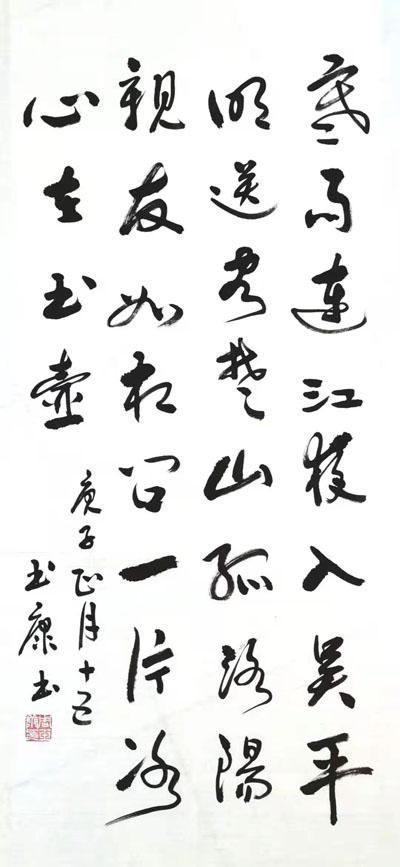 寒雨連江夜入吴平
明送客楚山孤洛陽
親友如相问一片冰
心在玉壺
庚子正月十五
玉康书